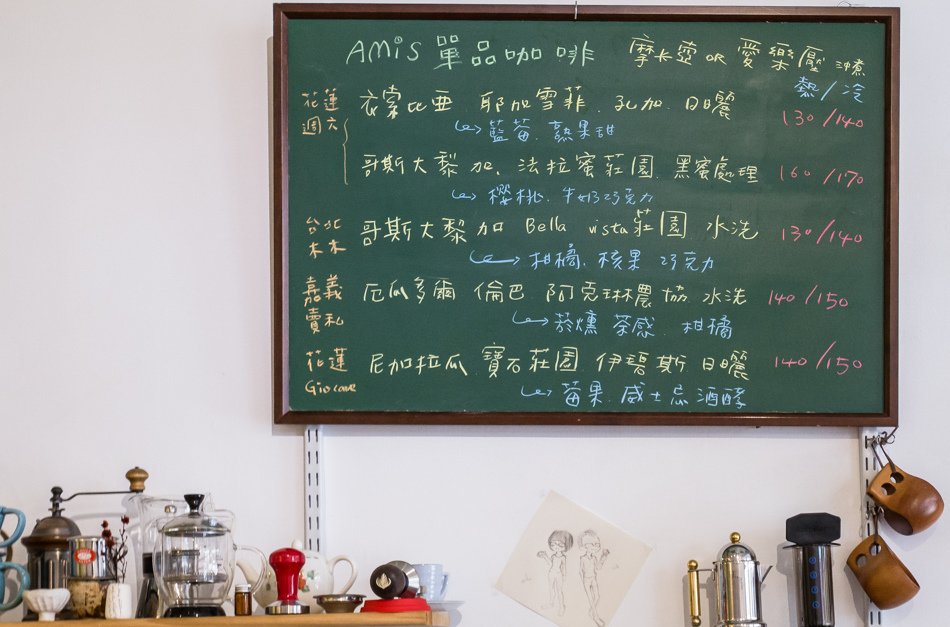 AMiS 單品咖啡 摩卡壺 OR 愛樂壓 沖煮
熱/冷
花蓮 週六
衣索比亞 耶加雪菲. 孔加. 日曬 130/140
藍莓. 熟果甜
哥斯大黎加. 法拉蜜莊園. 黑蜜處理 160/170
櫻桃. 牛奶巧克力
台北 木木 哥斯大黎加 Bella vista莊園 水洗 130/140
柑橘. 核果 巧克力
嘉義 賣私 厄瓜多爾 倫巴 阿克琳農協 水洗 140/150
菸燻 茶感. 柑橘
花蓮 Giocare 尼加拉瓜 寶石莊園 伊碧斯 日曬 140/150
莓果. 威士忌 酒酵